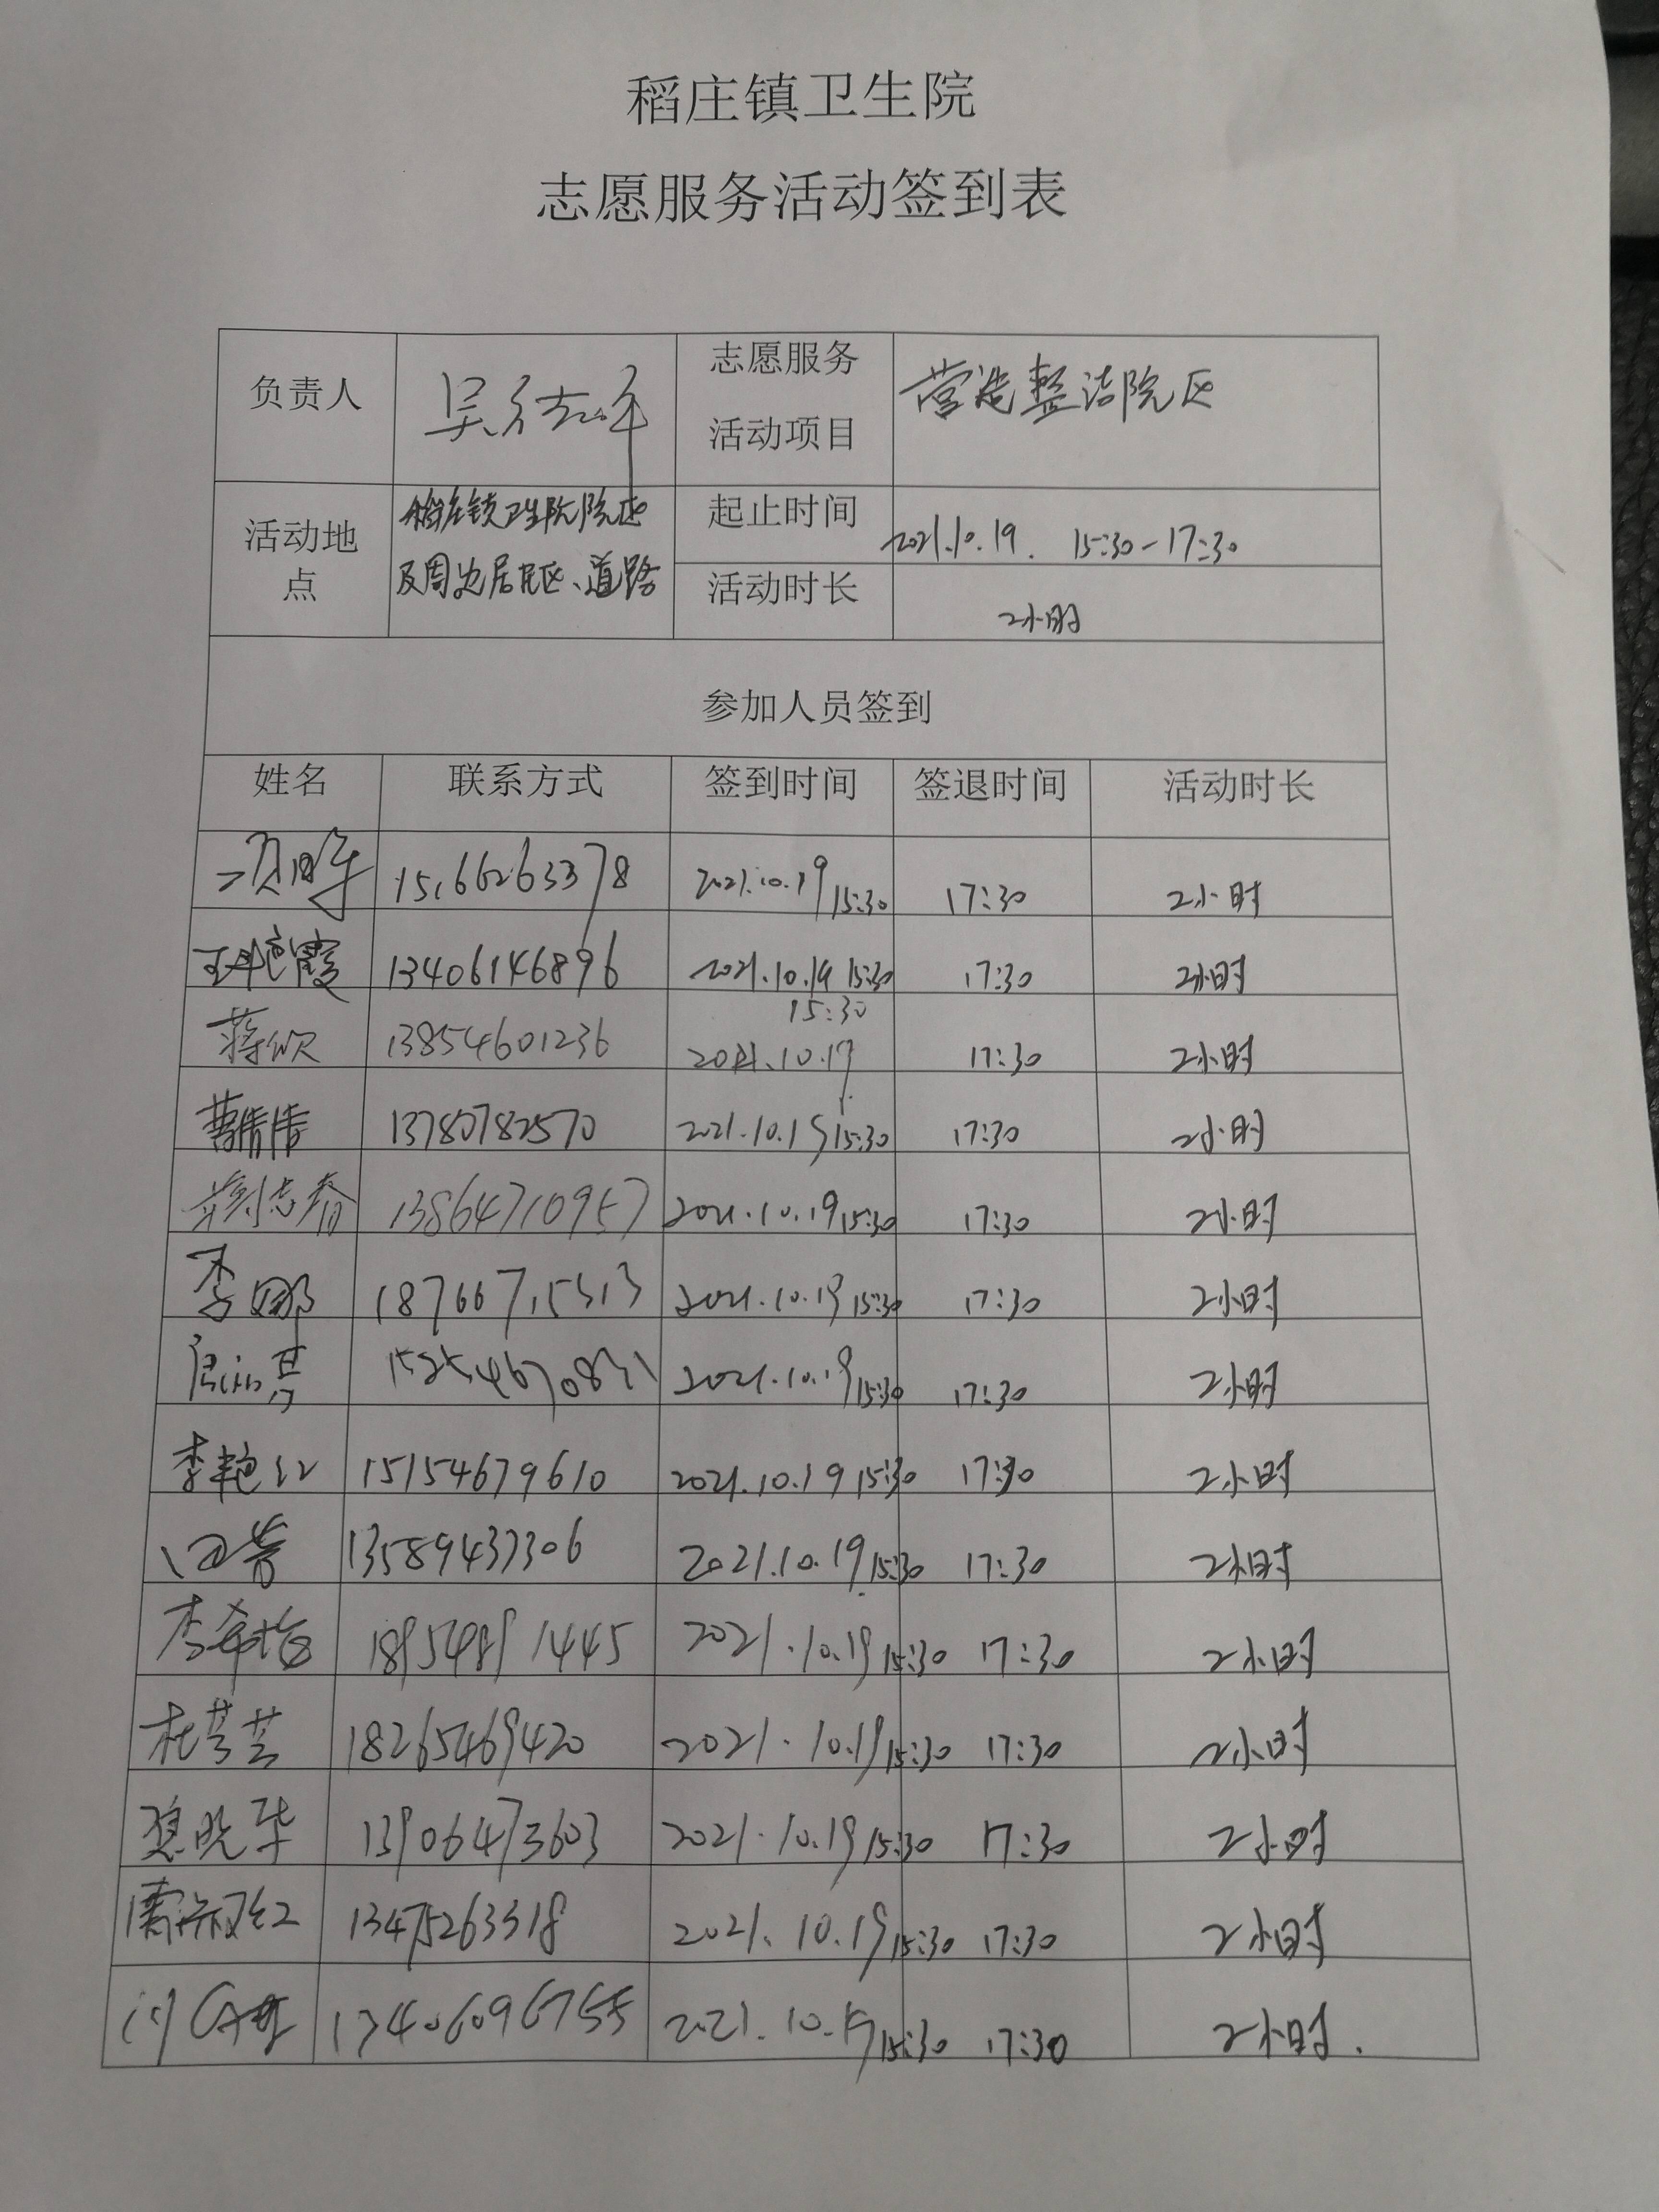 稻庄镇卫生院
志愿服务活动签到表
负责人
志愿服务
活动项目
营造整洁院区
活动地
点
稻庄镇卫生院院区
及周边居民区、道路
起止时间
2021.10.19. 15:30-17:30
活动时长
2小时
参加人员签到
姓名 联系方式 签到时间 签退时间 活动时长
2021.10.19 15:30 17:30 2小时
王艳霞 13406146896 2021.10.19 15:30 17:30 2小时
15:30
蒋欣 13854601236 2021.10.19 17:30 2小时
曹倩倩 13780782570 2021.10.19 15:30 17:30 2小时
13864710957 2021.10.19 15:30 17:30 2小时
李娜 18766715313 2021.10.19 15:30 17:30 2小时
2021.10.19 15:30 17:30 2小时
李艳红 15154679610 2021.10.19 15:30 17:30 2小时
13589437306 2021.10.19 15:30 17:30 2小时
李希梅 18954891445 2021.10.19 15:30 17:30 2小时
杜芸芸 18265469420 2021.10.19 15:30 17:30 2小时
晓华 13906473603 2021.10.19 15:30 17:30 2小时
13475263318 2021.10.19 15:30 17:30 2小时
13406096755 2021.10.19 15:30 17:30 2小时.